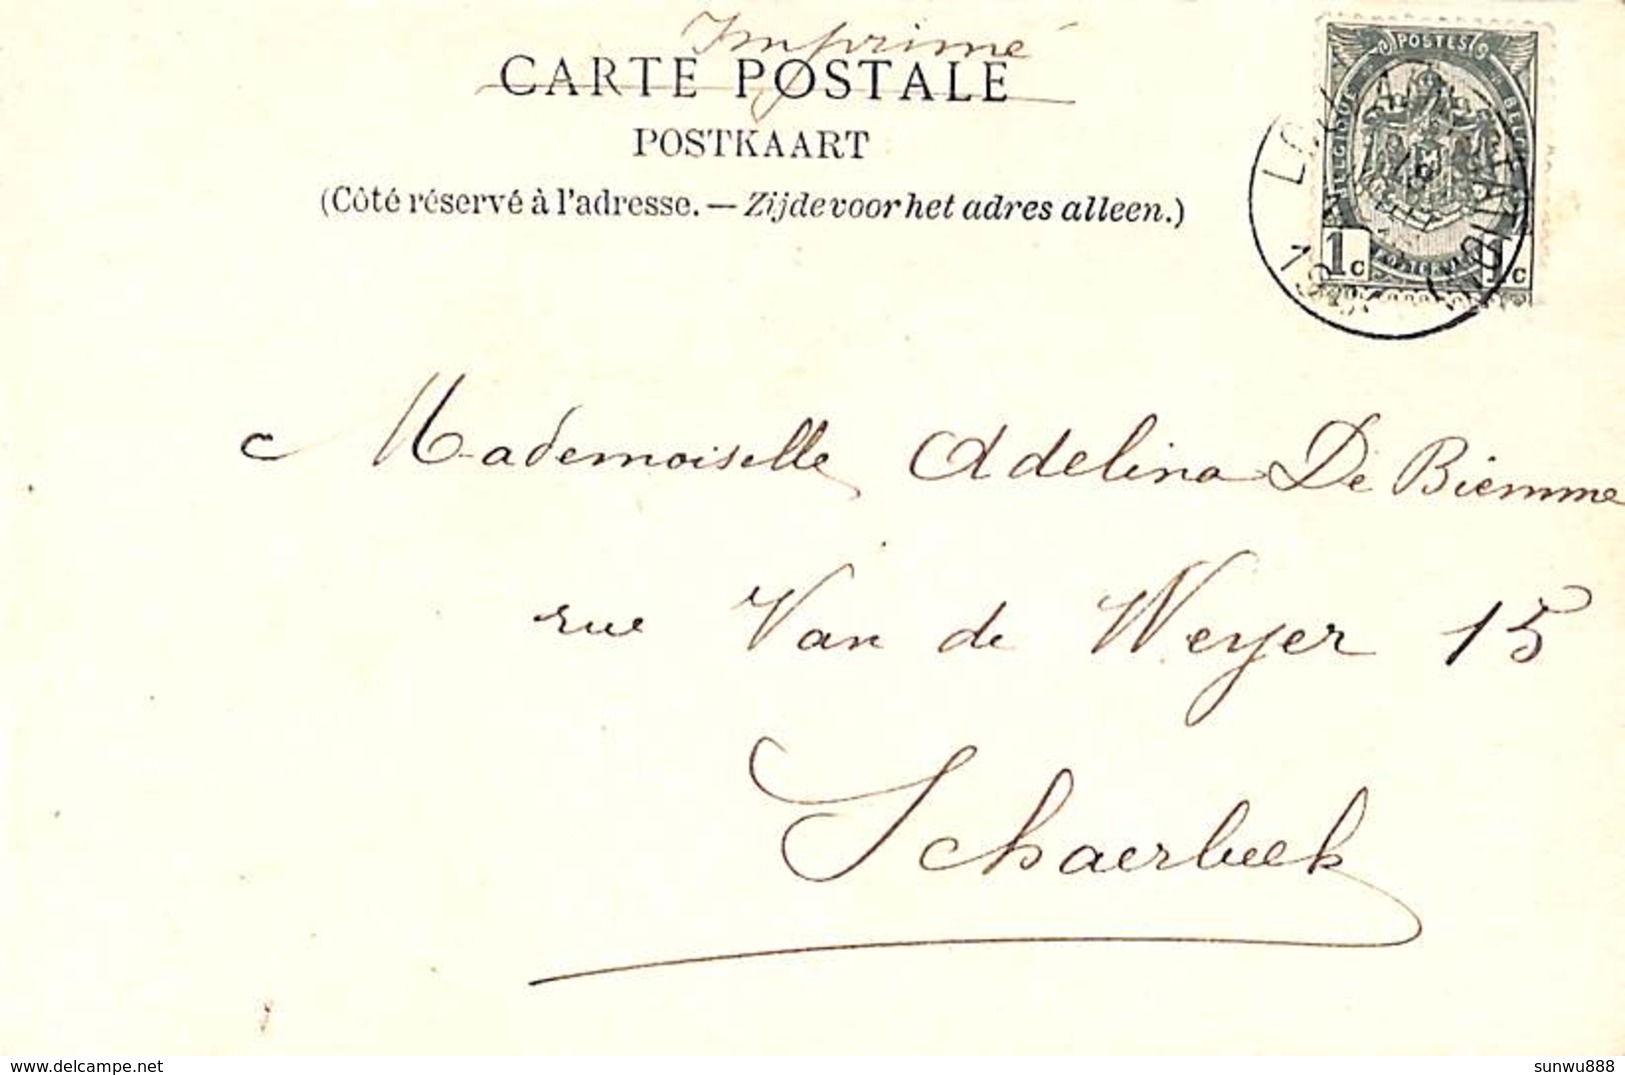 Imprimé
CARTE POSTALE
POSTKAART
(Côté réservé à l'adresse. — Zijde voor het adres alleen.)
POSTES
1c 1c
Mademoiselle Adelina De Biemme
rue Van de Weyer 15
Schaerbeek
delcampe.net
sunwu888